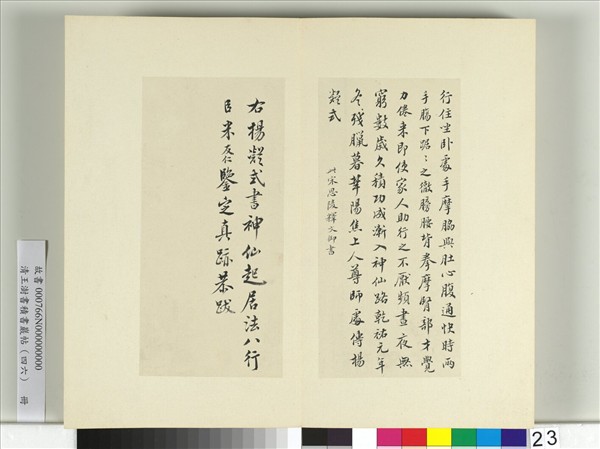 行住坐卧處手摩脇與肚心腹通快時兩
手腸下踞踞之徹膀腰背拳摩腎部才覺
力倦来即使家人助行之不厭頻晝夜無
窮數歲久積功成漸入神仙路乾祐元年
冬殘臘暮華陽焦上人尊師處傳楊
凝式
此宋思陵釋文御書
右楊凝式書神仙起居法八行
臣米友仁鑒定真跡恭跋
故書000766N000000000
清王澍書積書巖帖(四六) 冊
23